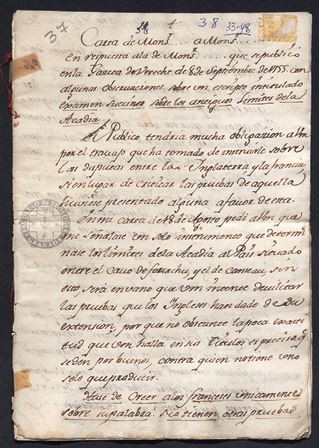 37
38
38
33-48
Carta de Mons... a Mons....
en respuesta a la de Mons...... que se publicó
en la Gazeta de Utrecht de 8 de Septiembre de 1755 con
algunas observaciones sobre un escripto intitulado
examen sucinto sobre los antiguos Limites de la
Acadia.
El Publico tendria mucha obligazion a Vm
por el travajo que ha tomado de instruirle sobre
las disputas entre la Inglaterra y la francia,
si en lugar de criticar las pruebas de aquella
huviese presentado alguna a favor de esta.
En mi Carta de 18 de Agosto pedi a Vm que
me señalase un solo instrumento que determi-
nase los limites de la Acadia al Pais situado
entre el Cavo de y el de Canseau, sin
esto será en vano que Vm intente devilitar
las pruebas que los Ingleses han dado de su
extension, por que no obstante la poca exacti-
tud que Vm halla en sus Titulos es preciso que
se den por buenos, contra quien no tiene uno
solo que producir.
Se ha de Creer a los franceses unicamente
sobre su palabra. Si no tienen otras pruebas